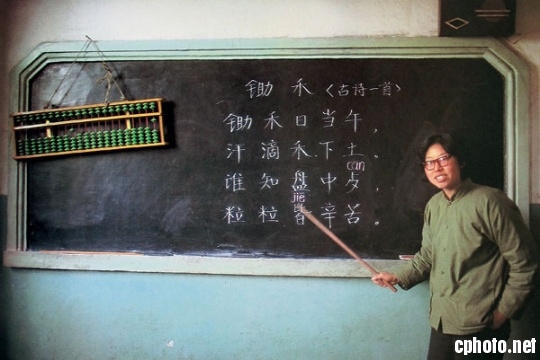 锄禾〈古诗一首〉
锄禾日当午，
汗滴禾下土。
can
谁知盘中歺，
jie
粒粒皆辛苦。
cphoto.net